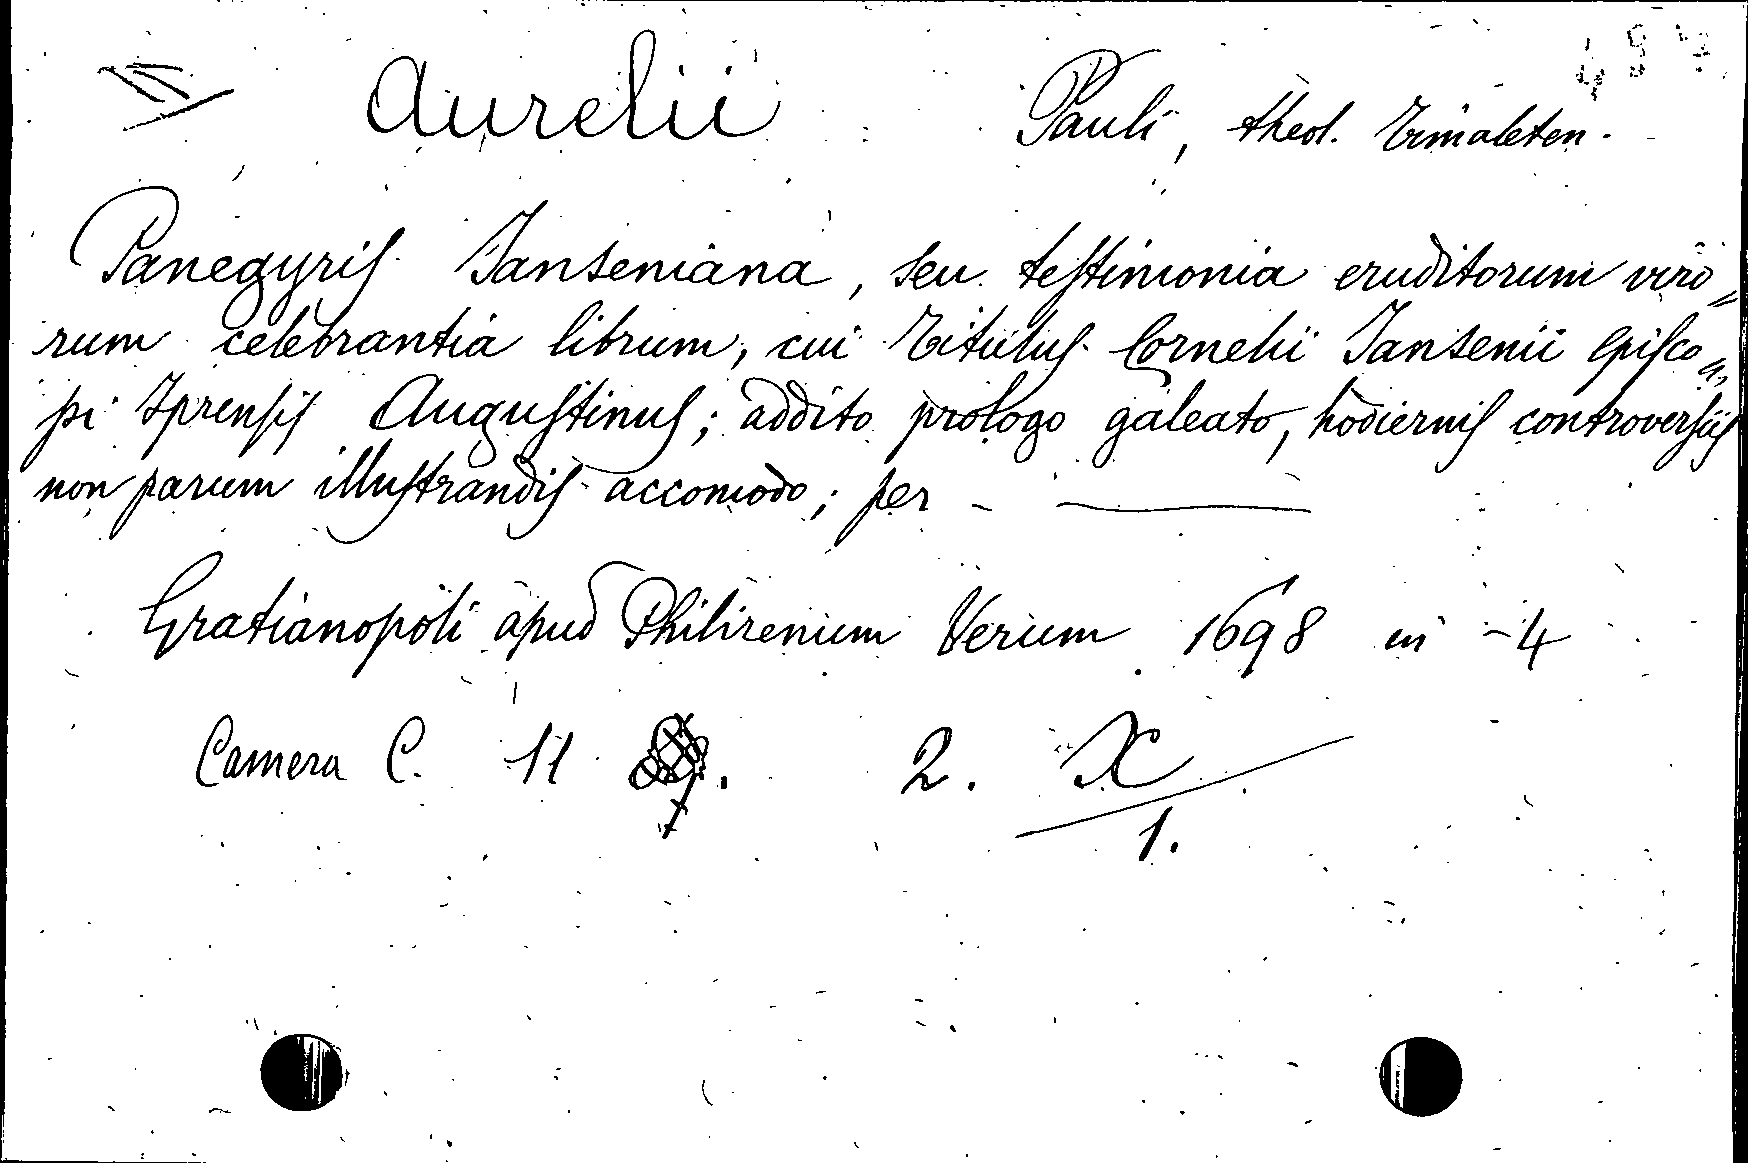 Aurelii Pauli, theol. Eimaleten.
Panegyris Janseniana, seu testimonia eruditorum viro„
rum celebrantia librum, cui Titulus Cornelii Jansenii Episco„
pi Iprensis Augustinus; addito prologo galeato, hodiernis controversiis
non parum illustrandis accomodo; per - ———
Gratianopoli apud Philirenium Verum 1698 in -4
Camera C. 11 . 2. X
1.